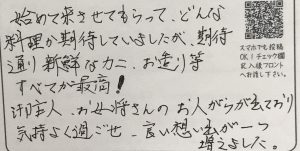 始めて来させてもらって、どんな
料理か期待していましたが、期待
通り新鮮なカニ、お造り等
すべてが最高!
ご主人、お女将さんのお人がらが出ており
気持よく過ごせ、言い想い出が一つ
増えました。
スマホでも投稿
OK!チェック欄
記入後フロント
へお渡し下さい。